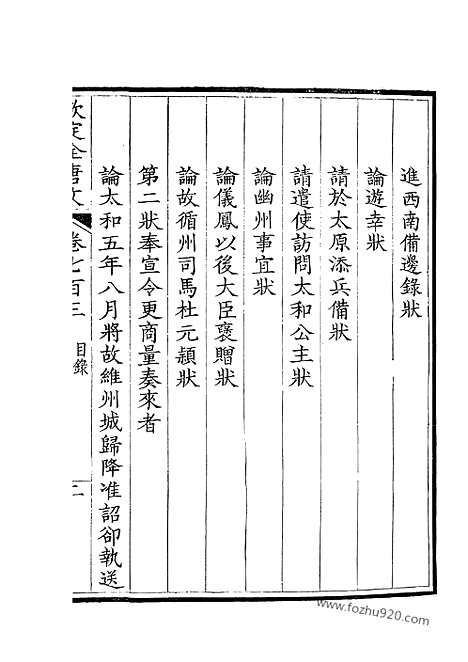 進西南備邊錄狀
論遊幸狀
請於太原添兵備狀
請遣使訪問太和公主狀
論幽州事宜狀
論儀鳳以後大臣褒贈狀
論故循州司馬杜元穎狀
第二狀奉宣令更商量奏來者
論太和五年八月將故維州城歸降准詔卻執送
欽定全唐文 卷七百三 目錄 二
www.fozhu920.com